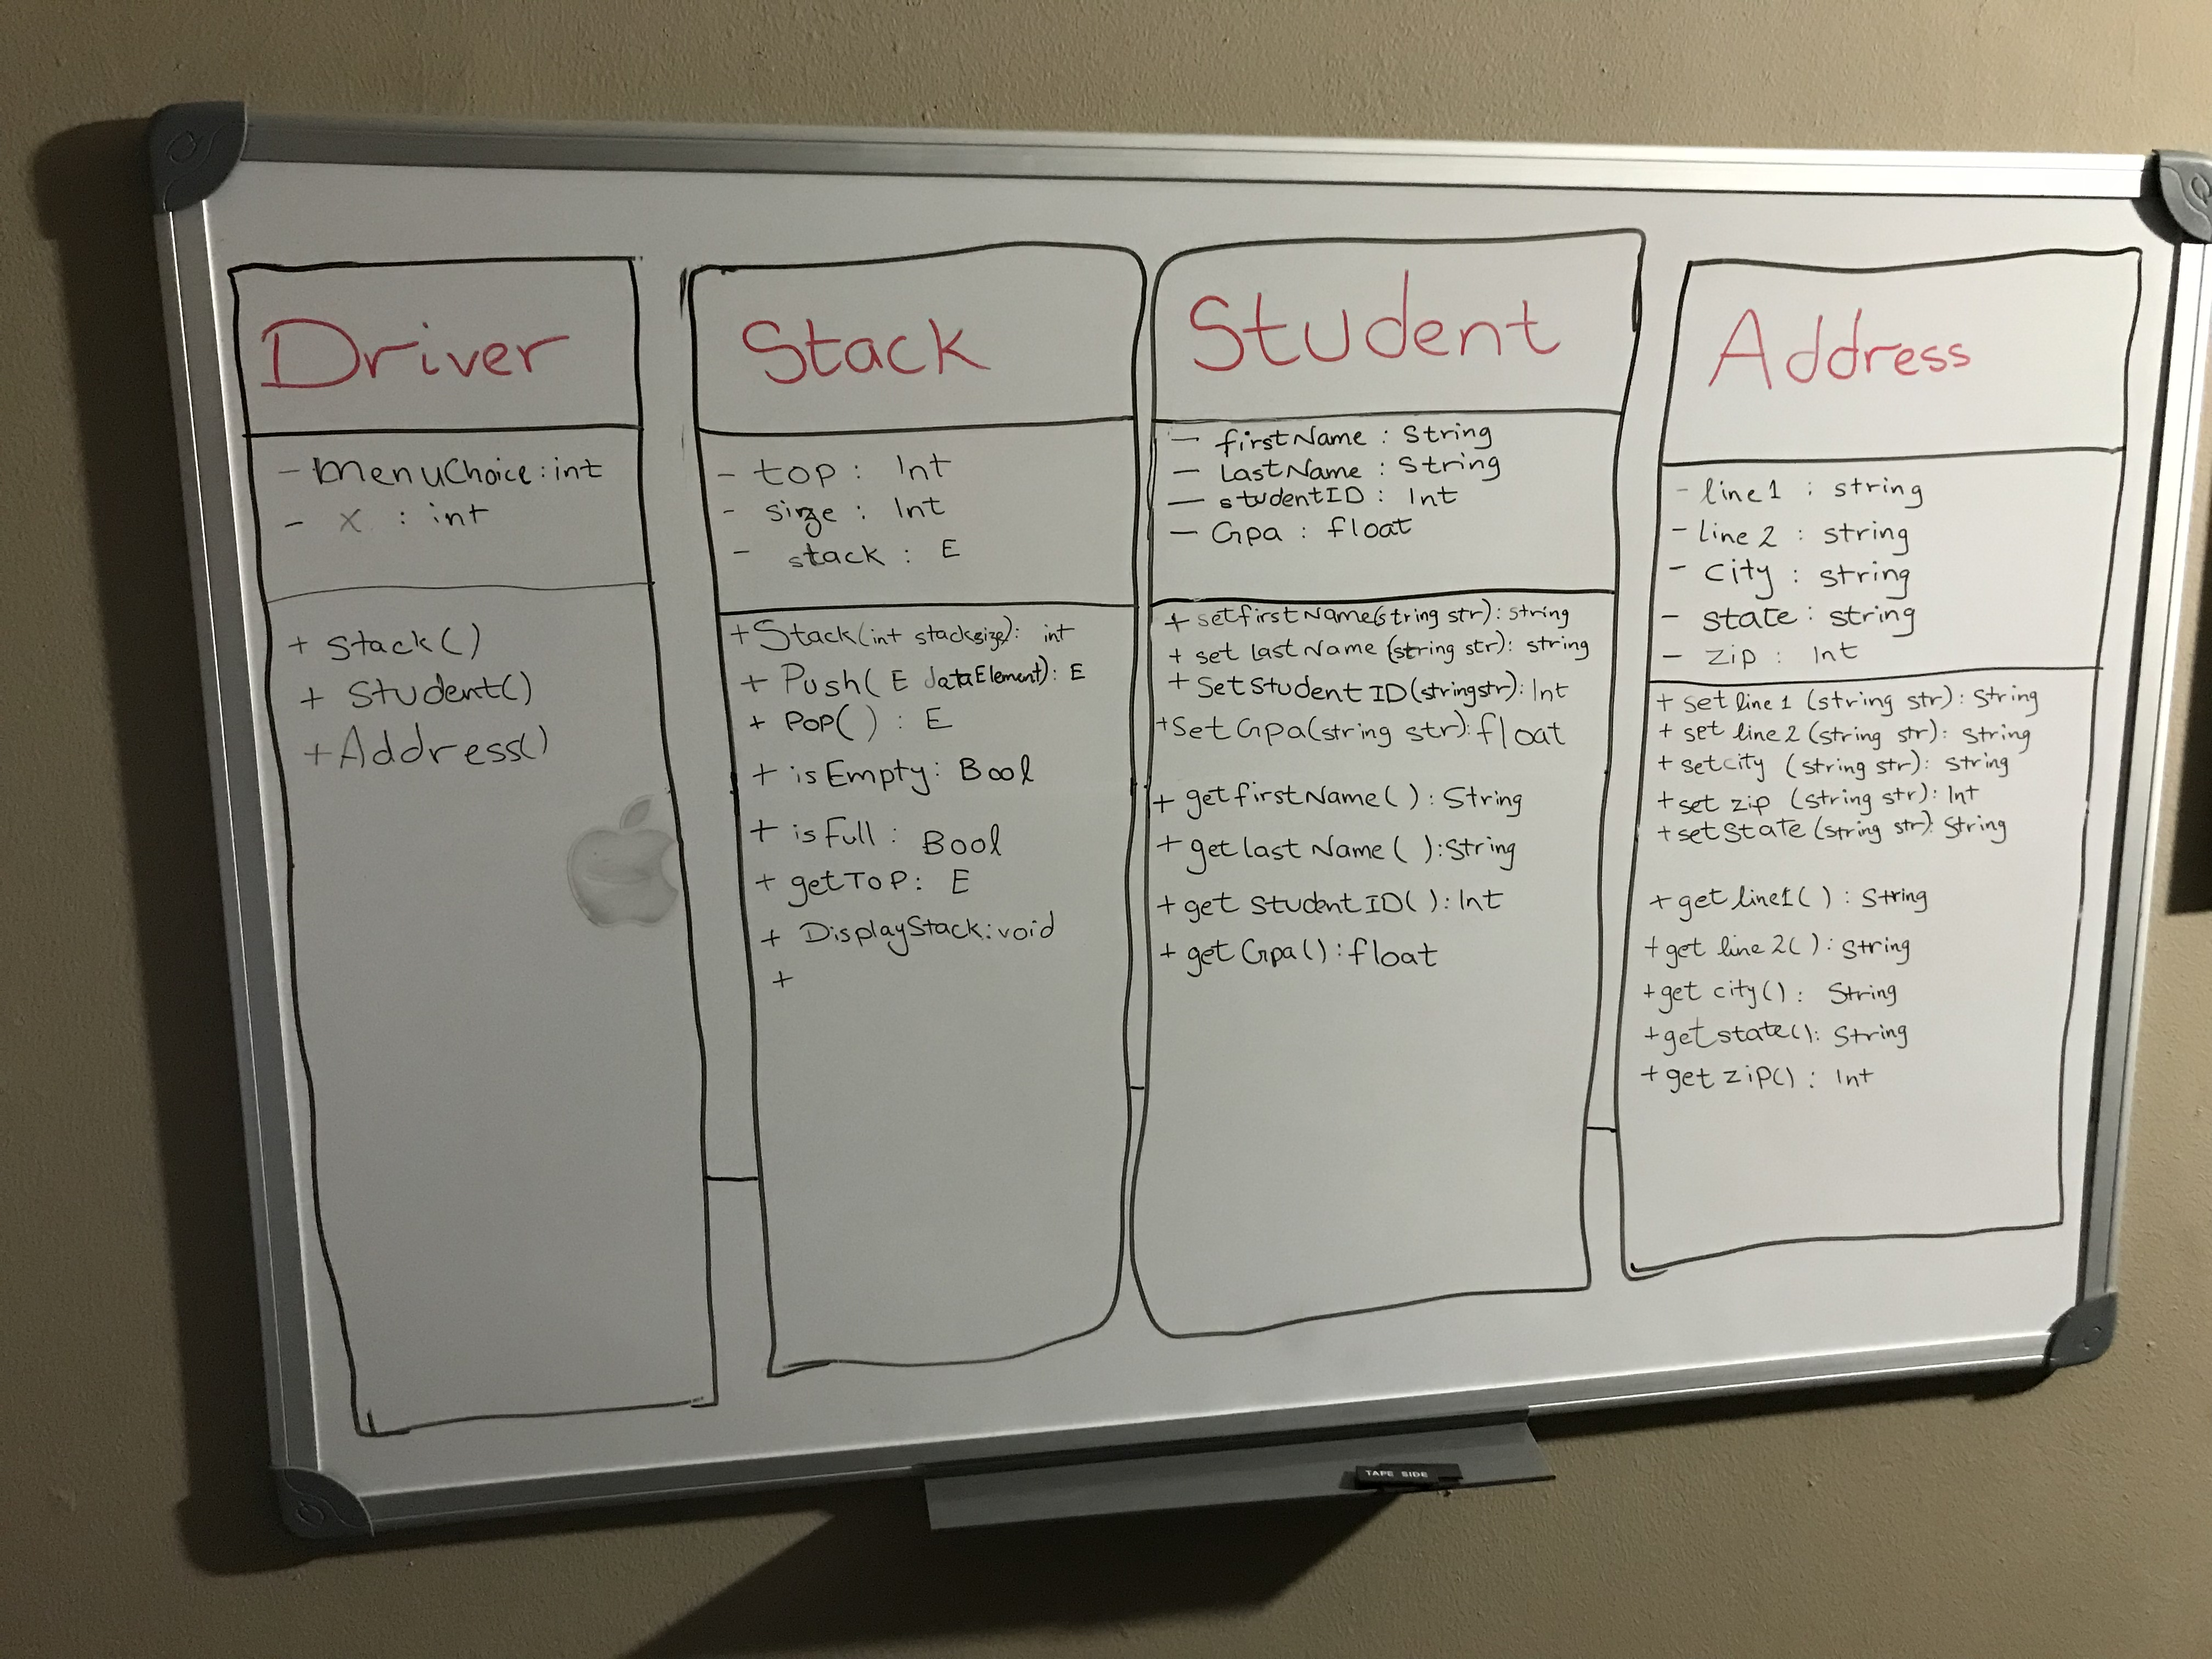 Driver
- MenuChoice : int
- X : int
+ Stack()
+ Student()
+ Address()
Stack
- top : Int
- size : Int
- stack : E
+ Stack(int stacksize): int
+ Push( E dataElement): E
+ POP( ) : E
+ isEmpty: Bool
+ isFull: Bool
+ getTOP: E
+ DisplayStack: void
+
Student
- firstName : String
- LastName : String
- studentID : Int
- Gpa : float
+ setfirstName(string str): string
+ set lastName (string str): string
+ Set Student ID(string str): Int
+ Set Gpa(string str): float
+ getfirstName( ) : String
+ get last Name ( ) : String
+ get Student ID( ) : Int
+ get Gpa( ) : float
Address
- line1 : string
- line 2 : string
- city : string
- state : string
- zip : Int
+ set line 1 (string str): String
+ set line 2 (string str): String
+ setcity (string str): String
+ set zip (string str): Int
+ setState (string str): String
+ get line1( ) : String
+ get line 2( ) : String
+ get city() : String
+ get state(): String
+ get zip() : Int
TAPE SIDE